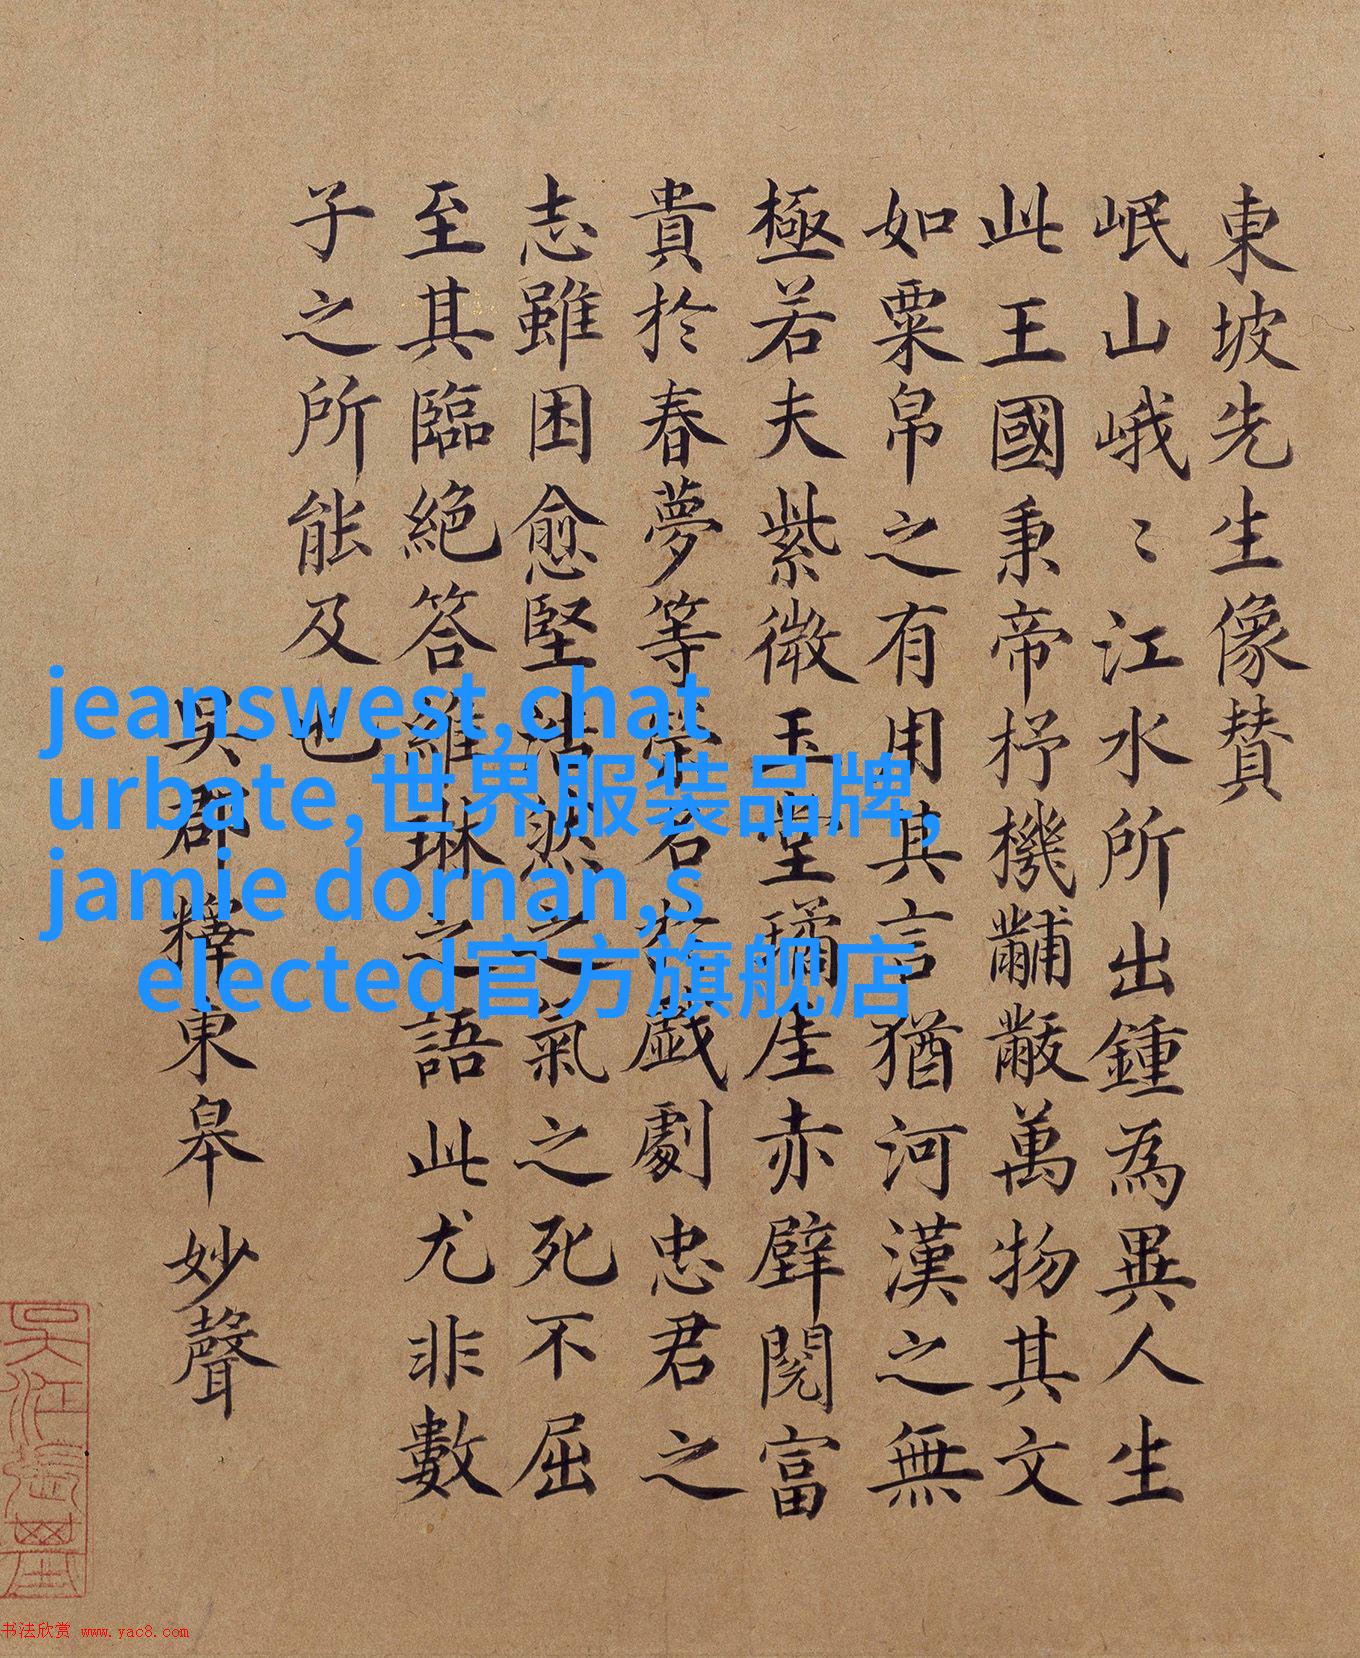 東坡先生像賛
岷山峨〻江水所出鍾為異人生
此王國秉帝杼機黼黻萬物其文
如粟帛之有用其言猶河漢之無
極若夫紫微玉堂瓊崖赤壁閱富
貴於春夢等榮名於戲劇忠君之
志雖困愈堅浩然之氣之死不屈
至其臨絕答維琳之語此尤非數
子之所能及也
吳郡釋東皋妙聲
jeanswest,chat
urbate,世界服装品牌,
jamie dornan,s
elected官方旗舰店
书法欣赏 www.yac8.com